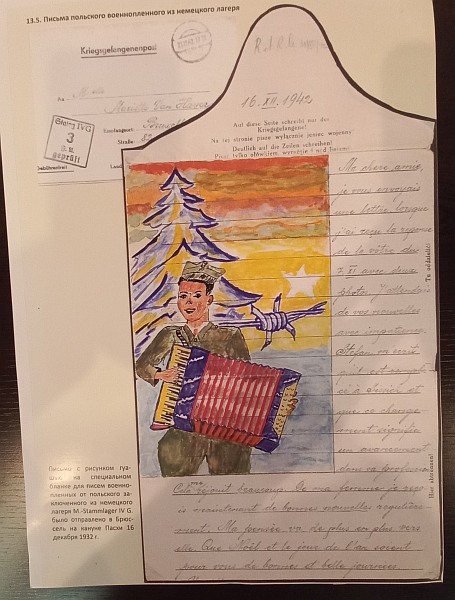 13.5. Письма польского военнопленного из немецкого лагеря
Kriegsgefangenenpost
An M-elle
Empfangsort:
Straße:
Stalag IVG
3
geprüft
16. XII. 1942
Auf diese Seite schreibt nur der
Kriegsgefangene!
Na tej stronie pisze wyłącznie jeniec wojenny!
Deutlich auf die Zeilen schreiben!
Ma chere amie,
je vous envoyais
une lettre lorsque
j'ai reçu la réponse
de la vôtre du
7. XI avec deux
photos. J'attendais
de vos nouvelles
avec impatience.
Stefan va
et
que ce change-
ment signifie
un avancement
dans sa profession
Cela me réjouit beaucoup. De ma
de bonnes nouvelles régulière-
ment. Ma pensée va de plus en plus vers
elle. Que Noël et le jour de l'an soient
pour vous de bonnes et belle journées.
Tu oddzielić!
Hier abtrennen!
Письмо с рисунком гуа-
шью на специальном
бланке для писем военно-
пленных от польского за-
ключенного из немецкого
лагеря M.-Stammlager IV G.
было отправлено в Брюс-
сель на кануне Пасхи 16
декабря 1932 г.